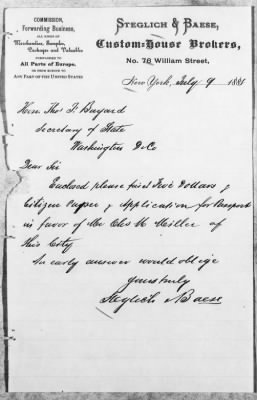 COMMISSION,
Forwarding Business,
ALL KINDS OF
Merchandise, Samples,
Packages and Valuables
FORWARDED TO
All Parts of Europe,
OR FROM EUROPE TO
ANY PART OF THE UNITED STATES
STEGLICH & BAESE,
Custom-House Brokers,
No. 76 William Street,
New York, July 9 1885
Hon. Thos F. Bayard
Secretary of State
Washington D.Co
Dear Sir
Enclosed please find Five Dollars,
Citizen Paper & Application for Passport
in favor of Mr Chs M. Miller of
this City
An early answer would oblige
yours truly
Steglich & Baese